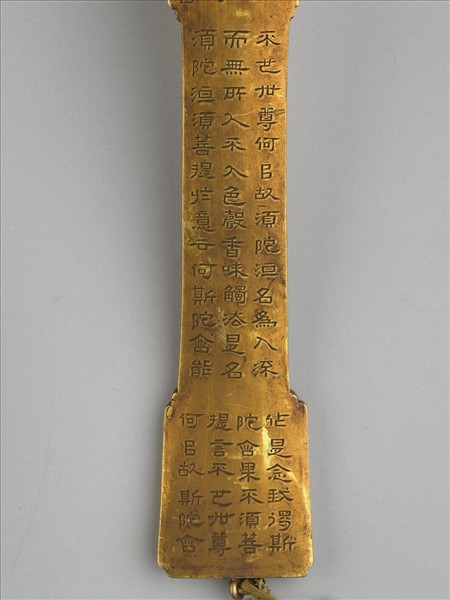 不也世尊何㠯故須陀洹名為入流
而無所入不入色聲香味觸法是名
須陀洹須菩提於意云何斯陀含能
作是念我得斯
陀含果不須菩
提言不也世尊
何㠯故斯陀含